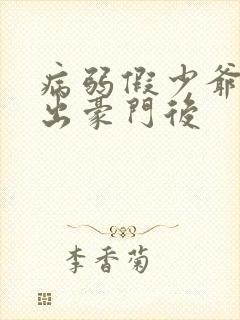 病弱假少爺
出豪門後
李香菊